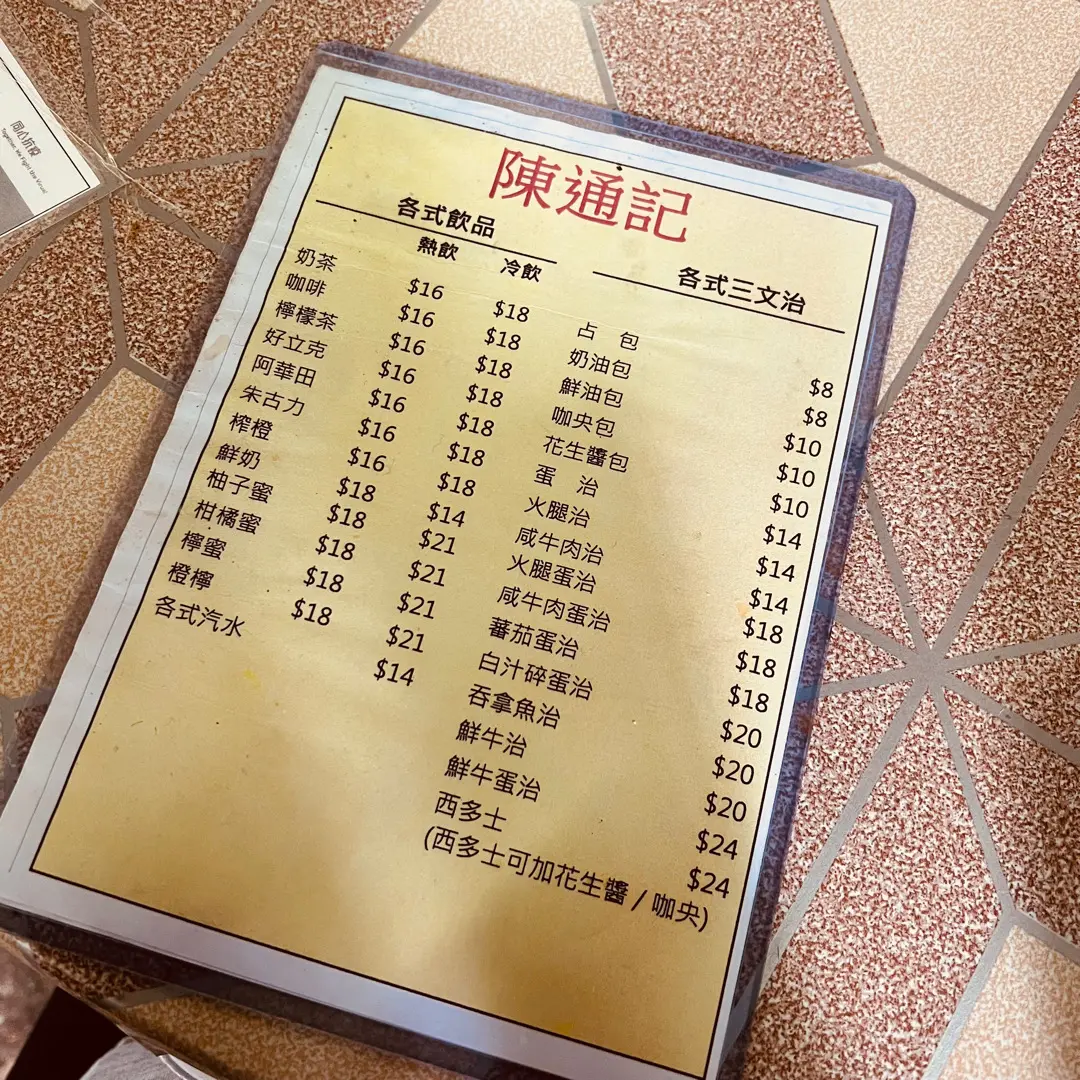 同心抗疫
Together, We Fight the Virus!
陳通記
各式飲品
熱飲 冷飲
奶茶 $16 $18
咖啡 $16 $18
檸檬茶 $16 $18
好立克 $16 $18
阿華田 $16 $18
朱古力 $16 $18
榨橙 $16 $18
鮮奶 $18 $14
柚子蜜 $18 $21
柑橘蜜 $18 $21
檸蜜 $18 $21
橙檸 $18 $21
各式汽水 $14
各式三文治
占 包 $8
奶油包 $8
鮮油包 $10
咖央包 $10
花生醬包 $10
蛋 治 $14
火腿治 $14
咸牛肉治 $14
火腿蛋治 $18
咸牛肉蛋治 $18
蕃茄蛋治 $18
白汁碎蛋治 $20
吞拿魚治 $20
鮮牛治 $20
鮮牛蛋治 $24
西多士 $24
(西多士可加花生醬 / 咖央)